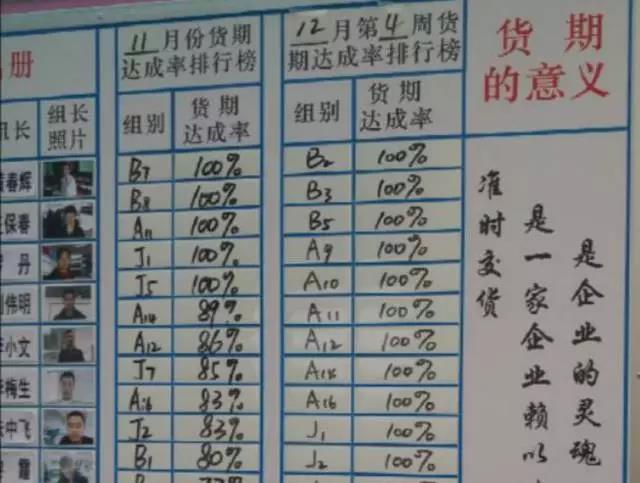 册
组长
照片
春辉
保春
丹
伟明
小文
梅生
中飞
霞
11月份货期
达成率排行榜
组别 货期达成率
B7 100%
B8 100%
A11 100%
J1 100%
J5 100%
A14 89%
A12 86%
J7 85%
A16 83%
J2 83%
B1 80%
12月第4周货
期达成率排行榜
组别 货期达成率
B2 100%
B3 100%
B5 100%
A9 100%
A10 100%
A11 100%
A12 100%
A14 100%
A16 100%
J1 100%
J2 100%
货期
的意义
准时交货
是一家企业赖以
是企业的灵魂